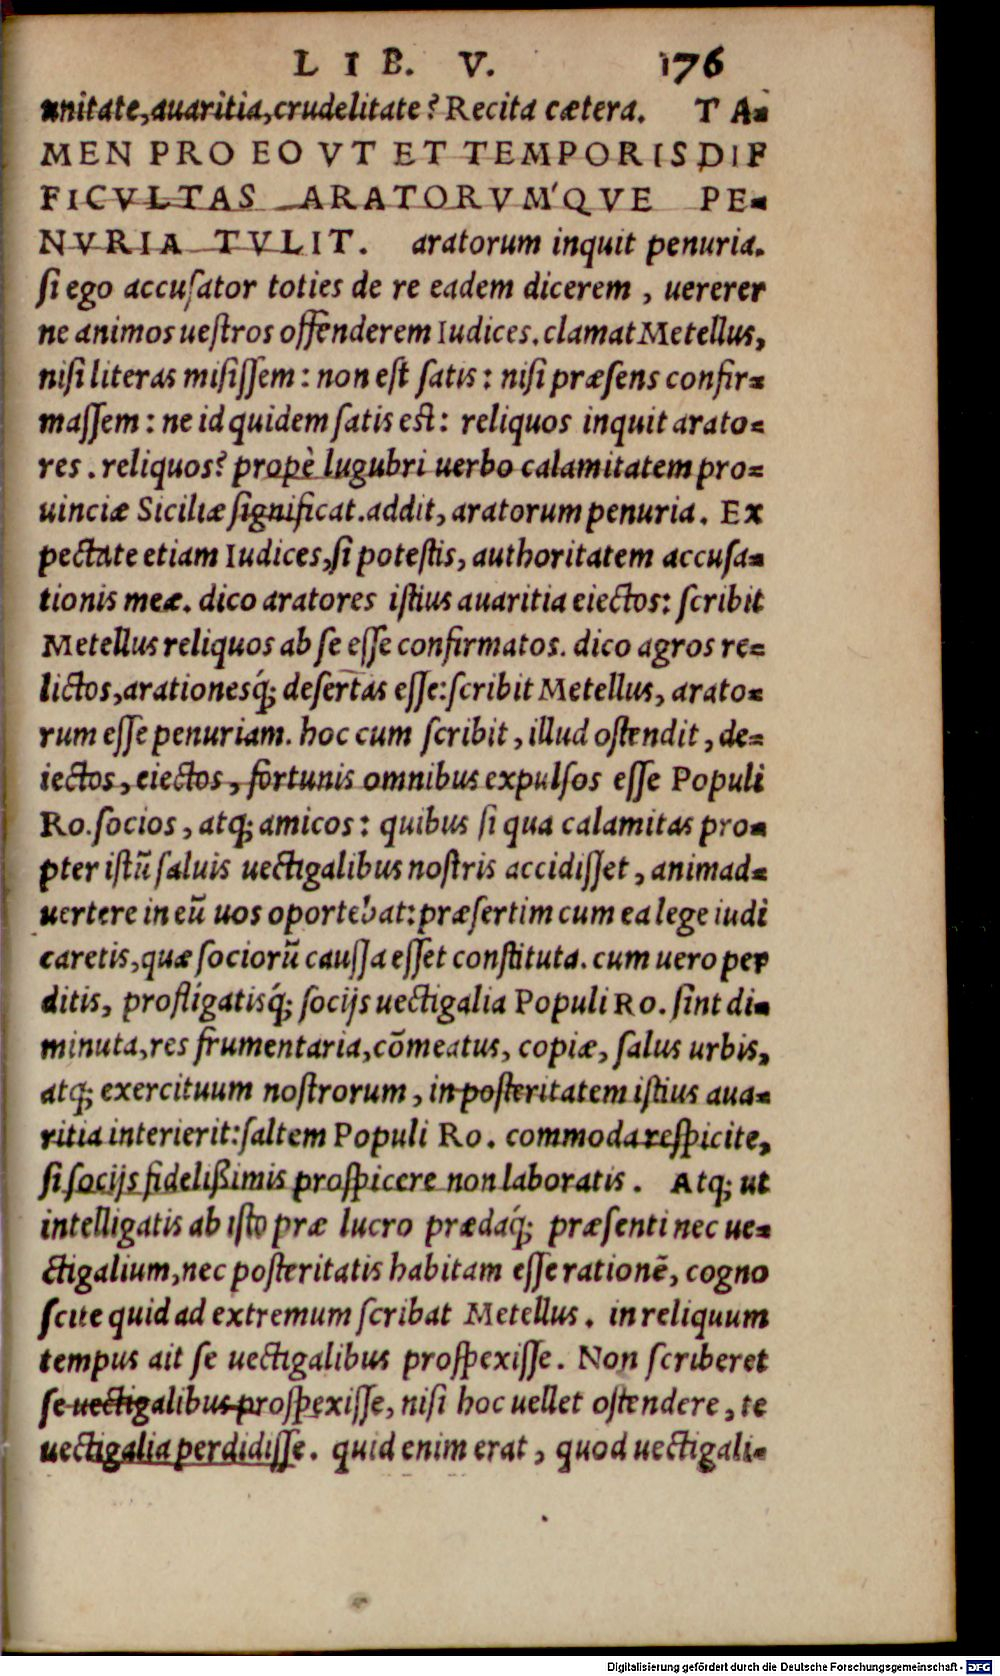 LIB. V. 176
unitate, auaritia, crudelitate? Recita cætera. TA-
MEN PRO EO VT ET TEMPORIS DIF
FICVLTAS ARATORVM'QVE PE-
NVRIA TVLIT. aratorum inquit penuria.
ſi ego accuſator toties de re eadem dicerem, uererer
ne animos ueſtros offenderem Iudices. clamat Metellus,
niſi literas miſiſſem: non eſt ſatis: niſi præſens confir-
maſſem: ne id quidem ſatis eſt: reliquos inquit arato-
res. reliquos? propè lugubri uerbo calamitatem pro-
uinciæ Siciliæ ſignificat. addit, aratorum penuria. Ex
pectate etiam Iudices, ſi poteſtis, authoritatem accuſa-
tionis meæ. dico aratores iſtius auaritia eiectos: ſcribit
Metellus reliquos ab ſe eſſe confirmatos. dico agros re-
lictos, arationesq́; deſertas eſſe: ſcribit Metellus, arato-
rum eſſe penuriam. hoc cum ſcribit, illud oſtendit, de-
iectos, eiectos, fortunis omnibus expulſos eſſe Populi
Ro. ſocios, atq; amicos: quibus ſi qua calamitas pro-
pter iſtũ ſaluis uectigalibus noſtris accidiſſet, animad-
uertere in eũ uos oportebat: præſertim cum ea lege iudi
caretis, quæ ſociorũ cauſſa eſſet conſtituta. cum uero per
ditis, profligatisq́; ſocijs uectigalia Populi Ro. ſint di-
minuta, res frumentaria, cõmeatus, copiæ, ſalus urbis,
atq; exercituum noſtrorum, in poſteritatem iſtius aua-
ritia interierit: ſaltem Populi Ro. commoda reſpicite,
ſi ſocijs fideliſſimis proſpicere non laboratis. Atq; ut
intelligatis ab iſto præ lucro prædaq́; præſenti nec ue-
ctigalium, nec poſteritatis habitam eſſe rationẽ, cogno
ſcite quid ad extremum ſcribat Metellus. in reliquum
tempus ait ſe uectigalibus proſpexiſſe. Non ſcriberet
ſe uectigalibus proſpexiſſe, niſi hoc uellet oſtendere, te
uectigalia perdidiſſe. quid enim erat, quod uectigali-
Digitalisierung gefördert durch die Deutsche Forschungsgemeinschaft - DFG